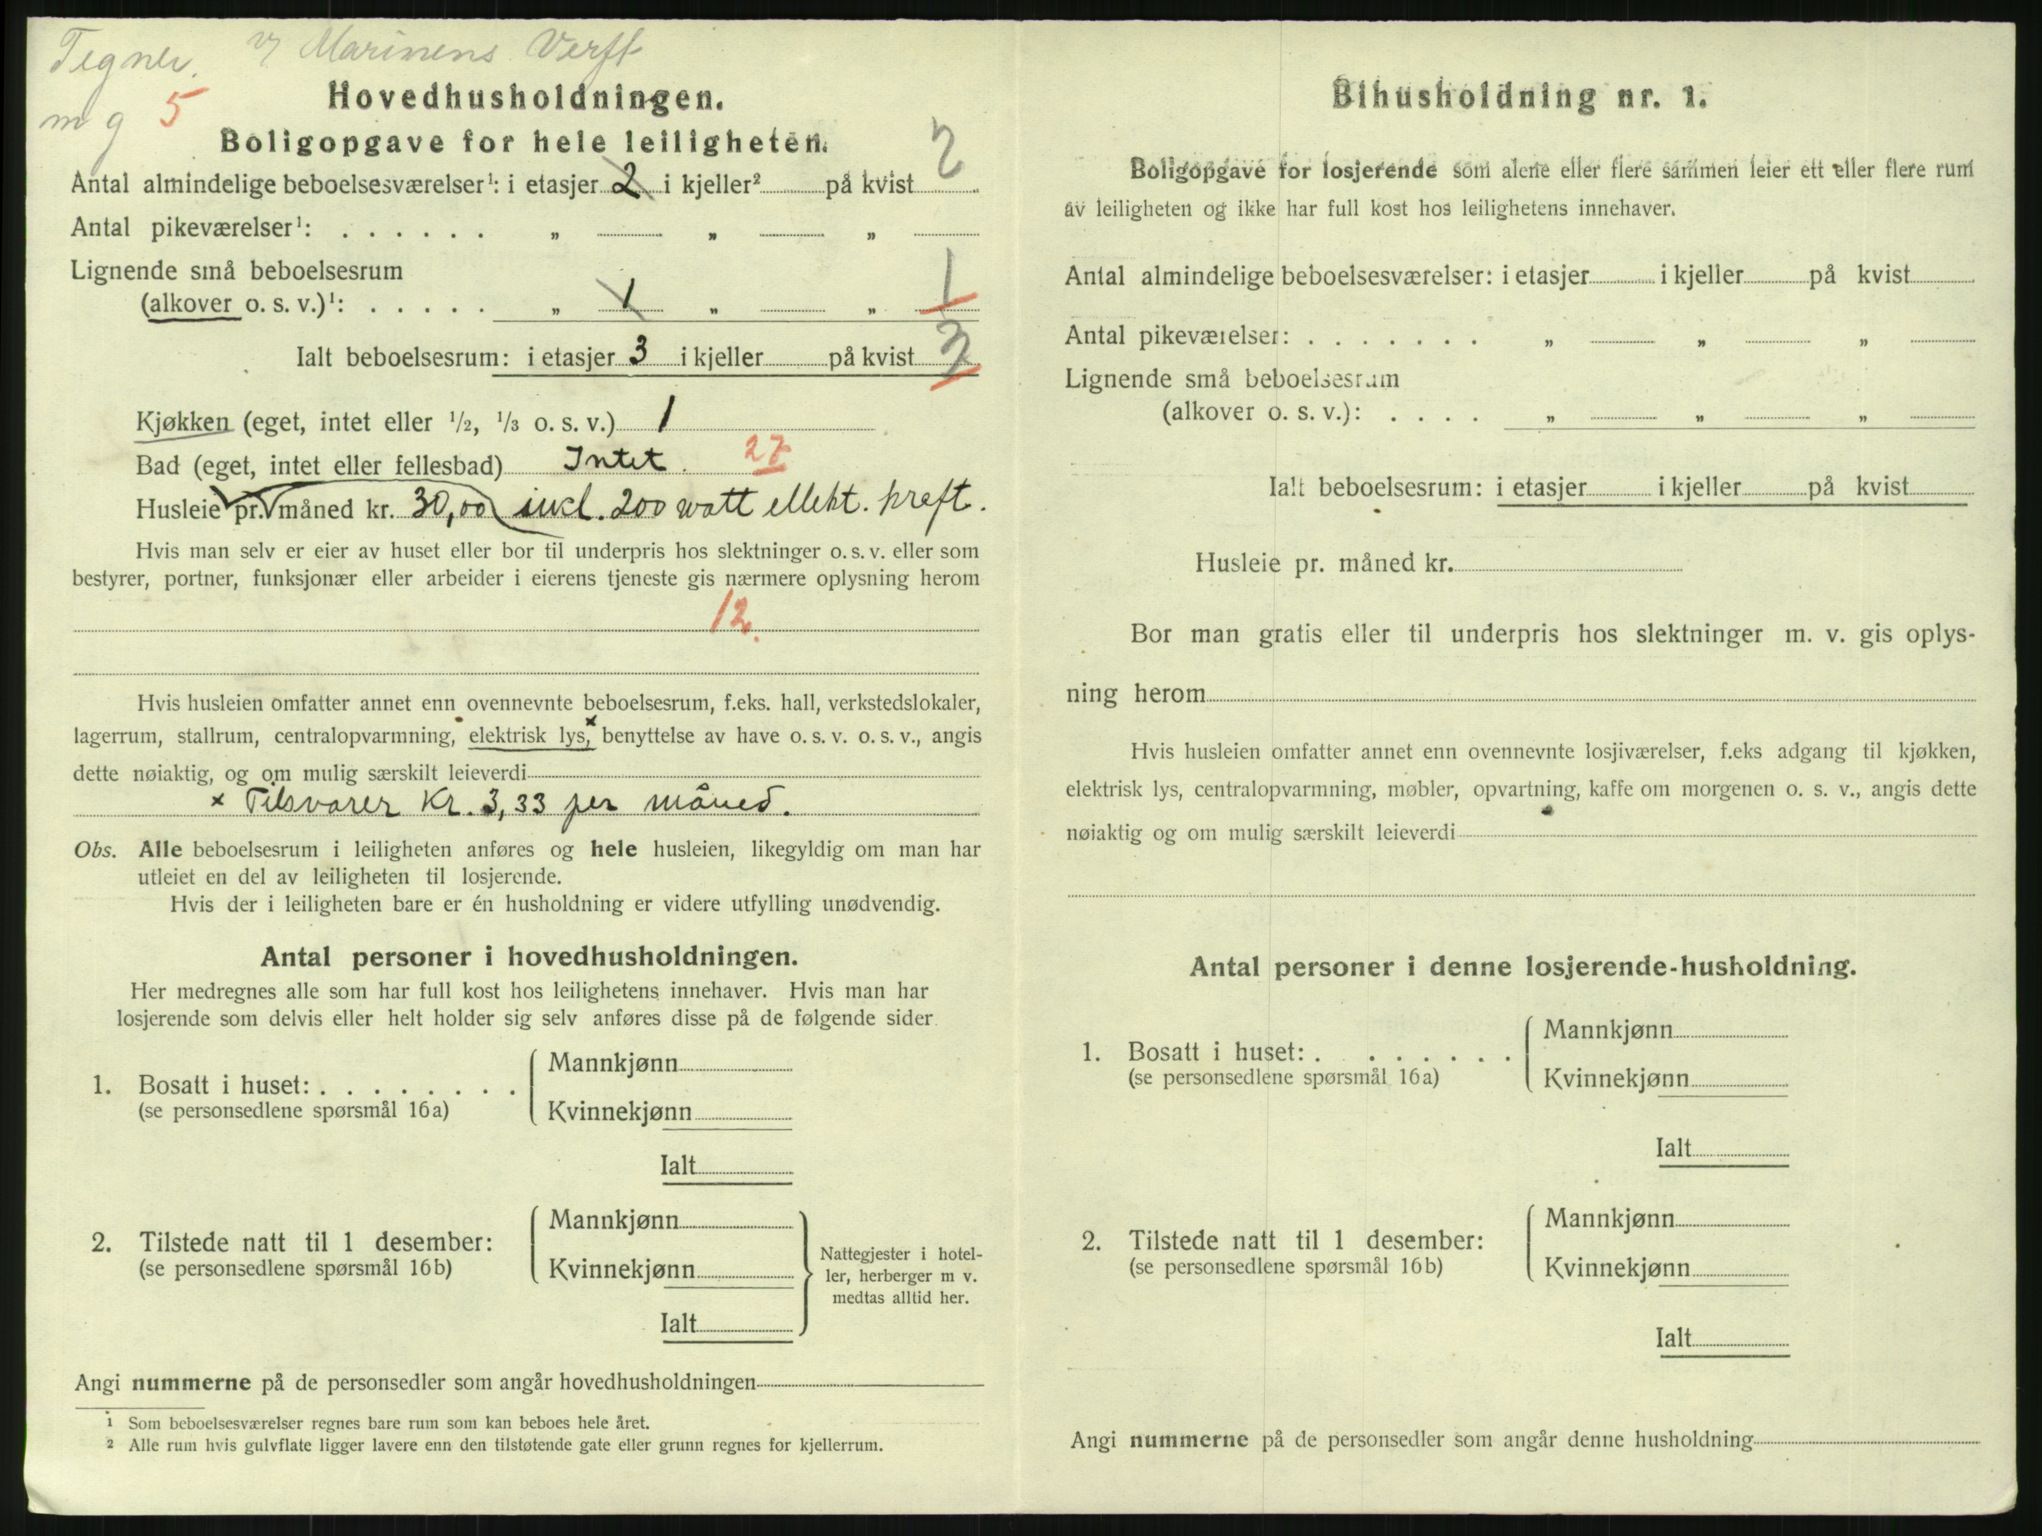 Tegner. v/ Marinens Verft
m g 5
Hovedhusholdningen.
Boligopgave for hele leiligheten.
Antal almindelige beboelsesværelser¹: i etasjer 2 i kjeller² på kvist 2
Antal pikeværelser¹: . . . . . . „ „ „
Lignende små beboelsesrum
(alkover o. s. v.)¹: . . . . . „ 1 „ „ 1
Ialt beboelsesrum: i etasjer 3 i kjeller på kvist 3
Kjøkken (eget, intet eller 1/2, 1/3 o. s. v.) 1
Bad (eget, intet eller fellesbad) Intet. 27
Husleie pr. måned kr. 30,00 inkl. 200 watt ellekt. kraft.
Hvis man selv er eier av huset eller bor til underpris hos slektninger o. s. v. eller som
bestyrer, portner, funksjonær eller arbeider i eierens tjeneste gis nærmere oplysning herom
12.
Hvis husleien omfatter annet enn ovennevnte beboelsesrum, f.eks. hall, verkstedslokaler,
lagerrum, stallrum, centralopvarmning, elektrisk lys,× benyttelse av have o. s. v. o. s. v., angis
dette nøiaktig, og om mulig særskilt leieverdi
× Tilsvarer Kr. 3,33 per måned.
Obs. Alle beboelsesrum i leiligheten anføres og hele husleien, likegyldig om man har
utleiet en del av leiligheten til losjerende.
Hvis der i leiligheten bare er én husholdning er videre utfylling unødvendig.
Antal personer i hovedhusholdningen.
Her medregnes alle som har full kost hos leilighetens innehaver. Hvis man har
losjerende som delvis eller helt holder sig selv anføres disse på de følgende sider
1. Bosatt i huset: . . . . . . . .
(se personsedlene spørsmål 16a)
Mannkjønn
Kvinnekjønn
Ialt
2. Tilstede natt til 1 desember:
(se personsedlene spørsmål 16b)
Mannkjønn
Kvinnekjønn
Ialt
Nattegjester i hotel-
ler, herberger m v.
medtas alltid her.
Angi nummerne på de personsedler som angår hovedhusholdningen
¹ Som beboelsesværelser regnes bare rum som kan beboes hele året.
² Alle rum hvis gulvflate ligger lavere enn den tilstøtende gate eller grunn regnes for kjellerrum.
Bihusholdning nr. 1.
Boligopgave for losjerende som alene eller flere sammen leier ett eller flere rum
av leiligheten og ikke har full kost hos leilighetens innehaver.
Antal almindelige beboelsesværelser: i etasjer i kjeller på kvist
Antal pikeværelser: . . . . . . . „ „ „
Lignende små beboelsesrum
(alkover o. s. v.): . . . . „ „ „
Ialt beboelsesrum: i etasjer i kjeller på kvist
Husleie pr. måned kr.
Bor man gratis eller til underpris hos slektninger m. v. gis oplys-
ning herom
Hvis husleien omfatter annet enn ovennevnte losjiværelser, f.eks adgang til kjøkken,
elektrisk lys, centralopvarmning, møbler, opvartning, kaffe om morgenen o. s. v., angis dette
nøiaktig og om mulig særskilt leieverdi
Antal personer i denne losjerende-husholdning.
1. Bosatt i huset: . . . . . . .
(se personsedlene spørsmål 16a)
Mannkjønn
Kvinnekjønn
Ialt
2. Tilstede natt til 1 desember:
(se personsedlene spørsmål 16b)
Mannkjønn
Kvinnekjønn
Ialt
Angi nummerne på de personsedler som angår denne husholdning